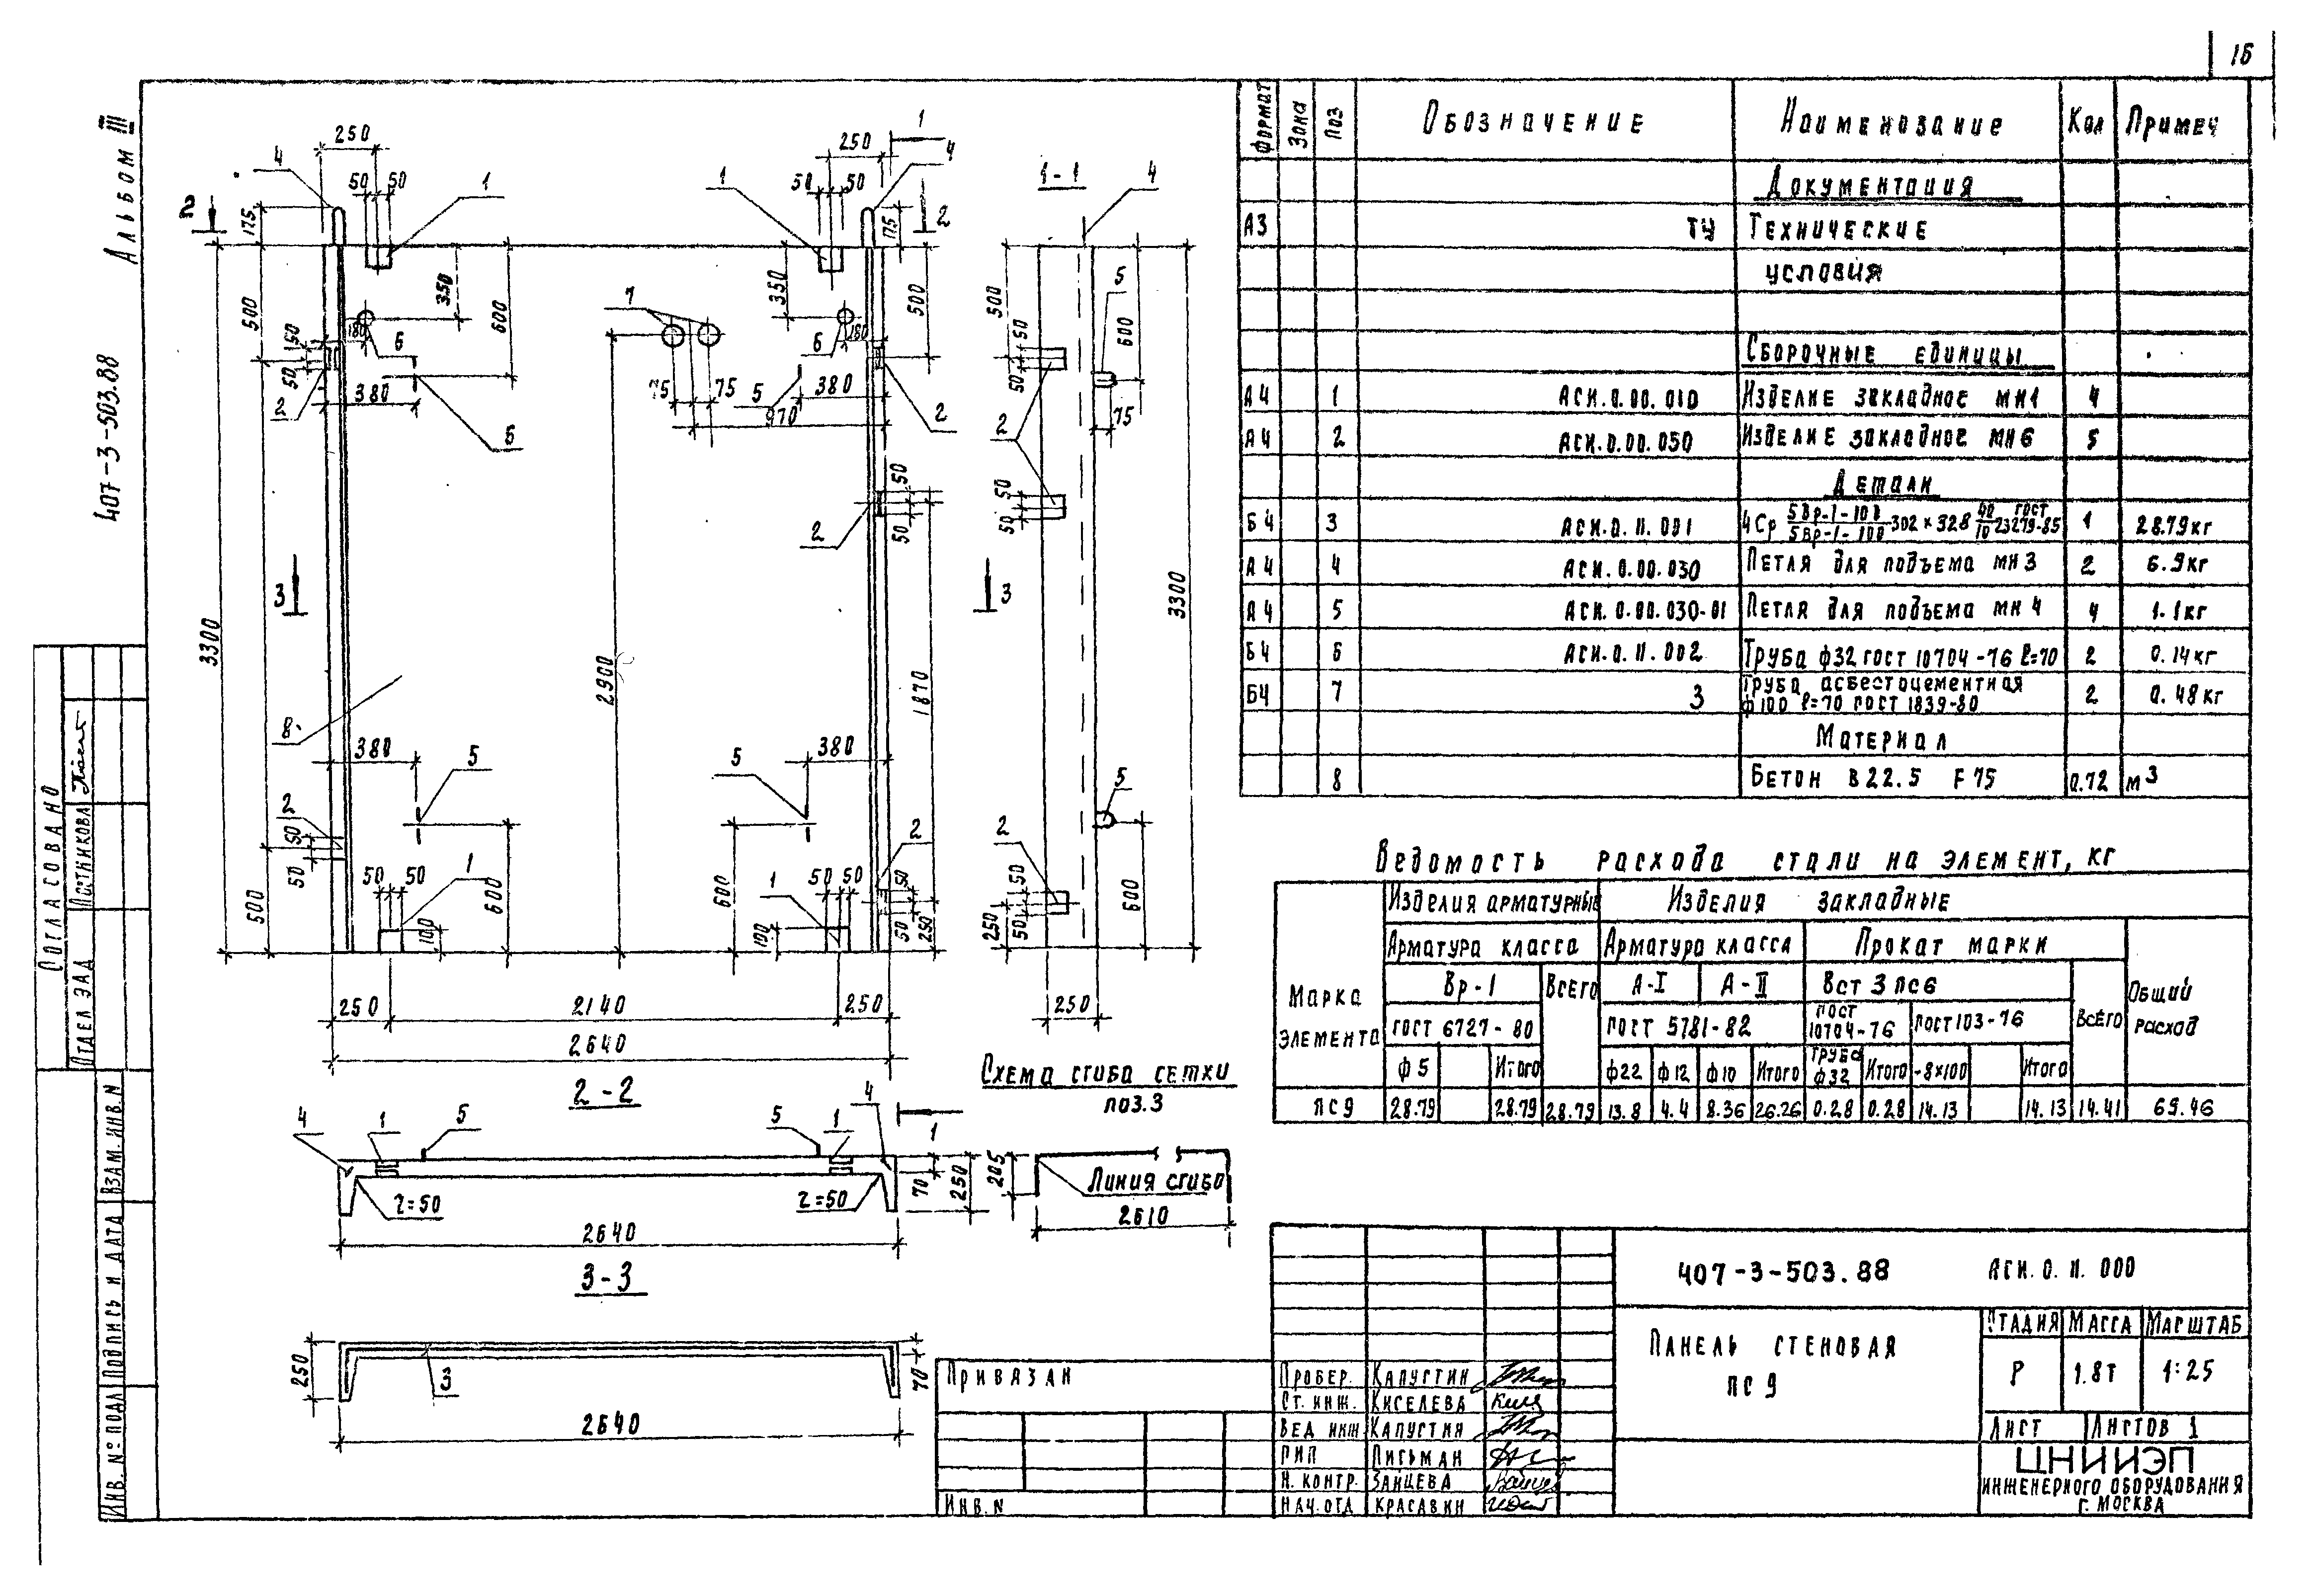 16
Альбом III
407-3-503.88
Согласовано
Отдел ЭАД
Постникова
Инв. № подл
Подпись и дата
Взам. инв. N
250
250
1
4
4
50 50
1
1
50 50
1-1
4
2
2
175
175
500
350
600
350
500
500
600
5
7
180
6
6
180
50
50
50
50
2
380
75
75
5
380
970
2
2
75
6
50
50
2
50
50
3
3
3300
2900
1870
3300
8
380
5
5
380
5
2
50
50
50 50
1
1
50 50
2
2
50
50
50
50
500
100
600
600
100
250
250
600
250
2140
250
250
2640
2-2
Схема сгиба сетки
поз.3
4
1
5
5
1
4
1
r=50
r=50
70
250
205
Линия сгиба
2610
2640
3-3
250
3
70
2640
Формат Зона Поз Обозначение Наименование Кол Примеч
Документация
А3 ТУ Технические
условия
Сборочные единицы
А4 1 АСИ.0.00.010 Изделие закладное МН1 4
А4 2 АСИ.0.00.050 Изделие закладное МН6 5
Детали
Б4 3 АСИ.0.11.001 4Ср 5Вр-1-100/5Вр-1-100 302×328 40/10 ГОСТ 23279-85 1 28.79кг
А4 4 АСИ.0.00.030 Петля для подъема МН3 2 6.9кг
А4 5 АСИ.0.00.030-01 Петля для подъема МН4 4 1.1кг
Б4 6 АСИ.0.11.002 Труба ф32 ГОСТ 10704-76 ℓ=70 2 0.14кг
Б4 7 3 Труба асбестоцементная
ф100 ℓ=70 ГОСТ 1839-80 2 0.48кг
Материал
8 Бетон В22.5 F75 0.72 м3
Ведомость расхода стали на элемент, кг
Марка элемента
Изделия арматурные Изделия закладные
Арматура класса Арматура класса Прокат марки
Вр-1 Всего А-I А-II Вст3пс6 Всего Общий расход
ГОСТ 6727-80 ГОСТ 5781-82 ГОСТ 10704-76 ГОСТ 103-76
ф5 Итого ф22 ф12 ф10 Итого Труба ф32 Итого -8×100 Итого
ПС9 28.79 28.79 28.79 13.8 4.4 8.36 26.26 0.28 0.28 14.13 14.13 14.41 69.46
407-3-503.88 АСИ.0.11.000
Панель стеновая
ПС9
Стадия Масса Масштаб
Р 1.8т 1:25
Лист Листов 1
ЦНИИЭП
инженерного оборудования
г. Москва
Привязан
Инв. N
Провер. Капустин
Ст. инж. Киселева
Вед инж Капустин
ГИП Письман
Н. контр. Зайцева
Нач. отд Красавин